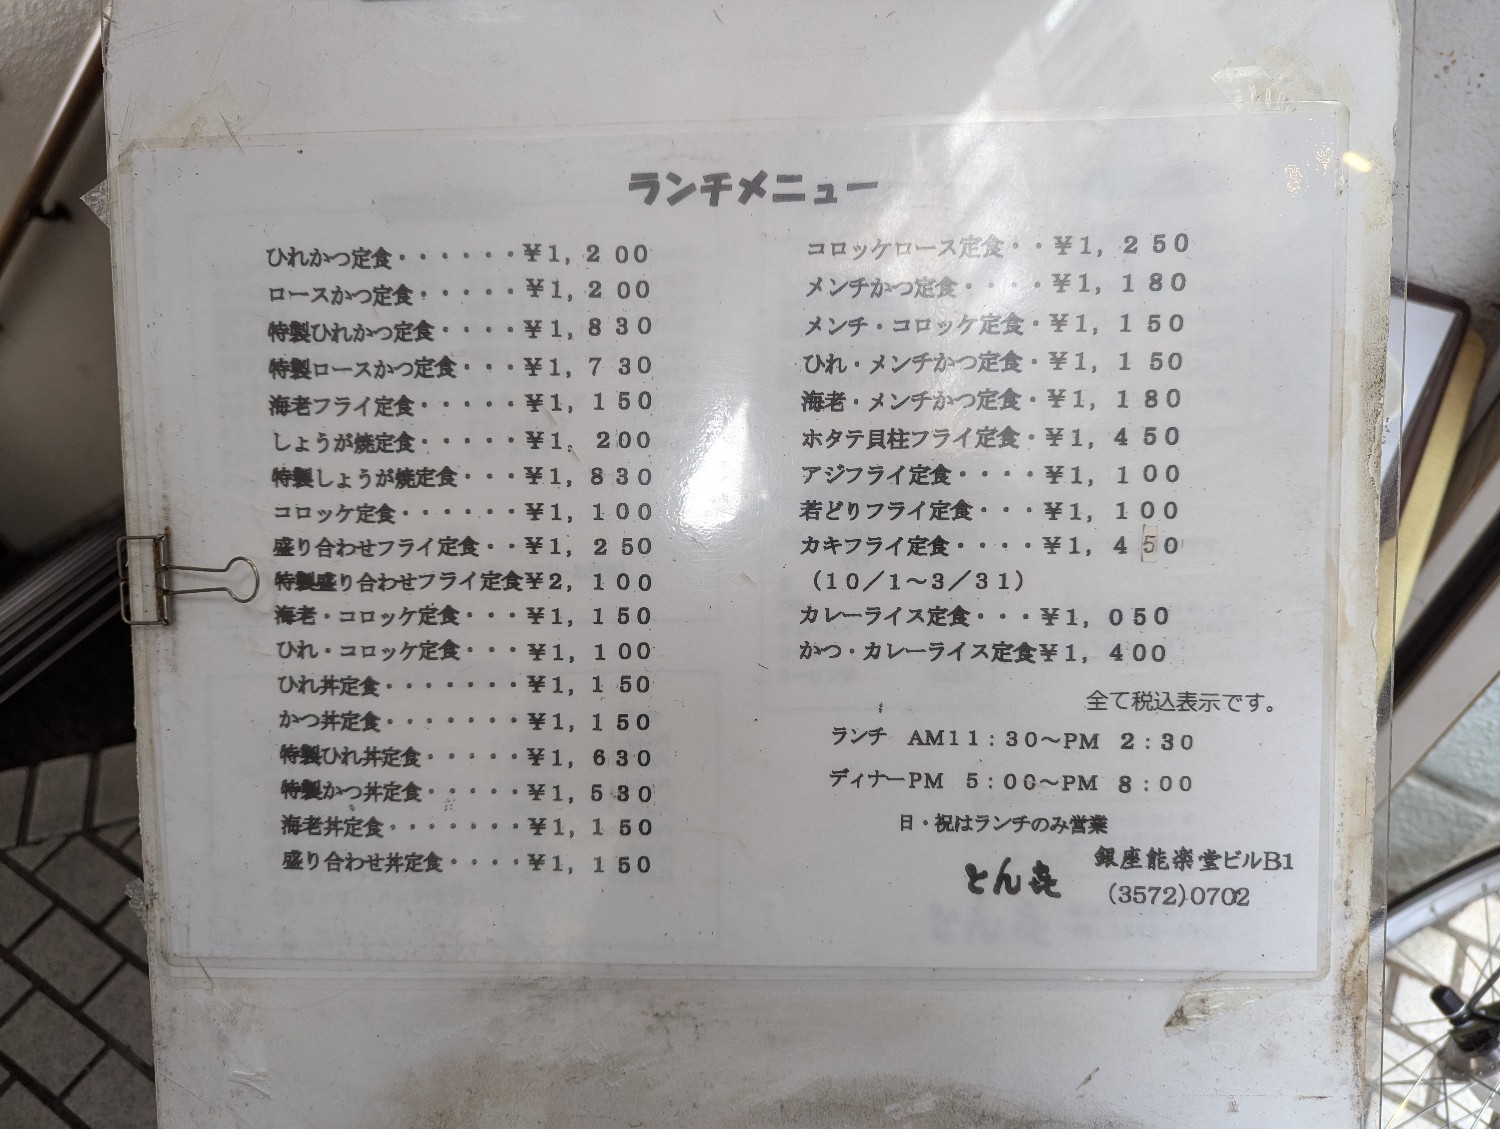 ランチメニュー
ひれかつ定食・・・・・・¥1,200
ロースかつ定食・・・・・¥1,200
特製ひれかつ定食・・・・¥1,830
特製ロースかつ定食・・・¥1,730
海老フライ定食・・・・・¥1,150
しょうが焼定食・・・・・¥1,200
特製しょうが焼定食・・・¥1,830
コロッケ定食・・・・・・¥1,100
盛り合わせフライ定食・・¥1,250
特製盛り合わせフライ定食¥2,100
海老・コロッケ定食・・・¥1,150
ひれ・コロッケ定食・・・¥1,100
ひれ丼定食・・・・・・・¥1,150
かつ丼定食・・・・・・・¥1,150
特製ひれ丼定食・・・・・¥1,630
特製かつ丼定食・・・・・¥1,530
海老丼定食・・・・・・・¥1,150
盛り合わせ丼定食・・・・¥1,150
コロッケロース定食・・¥1,250
メンチかつ定食・・・・¥1,180
メンチ・コロッケ定食・¥1,150
ひれ・メンチかつ定食・¥1,150
海老・メンチかつ定食・¥1,180
ホタテ貝柱フライ定食・¥1,450
アジフライ定食・・・・¥1,100
若どりフライ定食・・・¥1,100
カキフライ定食・・・・¥1,450
(10/1～3/31)
カレーライス定食・・・¥1,050
かつ・カレーライス定食¥1,400
全て税込表示です。
ランチ AM11:30～PM 2:30
ディナーPM 5:00～PM 8:00
日・祝はランチのみ営業
とん㐂 銀座能楽堂ビルB1
(3572)0702